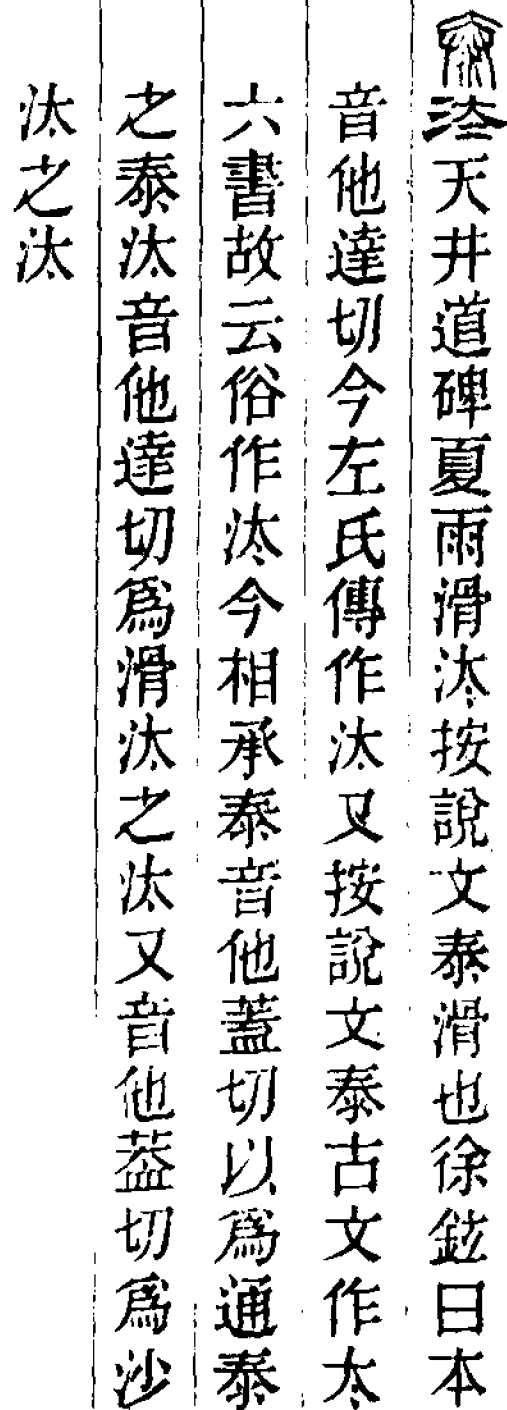 泰汰天井道碑夏雨滑汰按說文泰滑也徐鉉曰本
音他達切今左氏傳作汰又按說文泰古文作太
六書故云俗作汰今相承泰音他蓋切以爲通泰
之泰汰音他達切爲滑汰之汰又音他蓋切爲沙
汰之汰